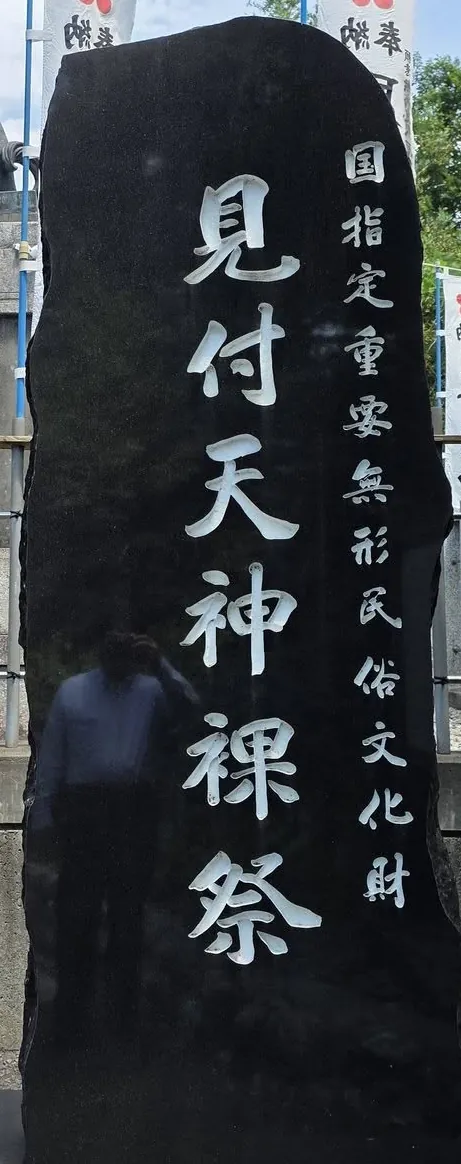 国指定重要無形民俗文化財
見付天神裸祭
奉納
奉納